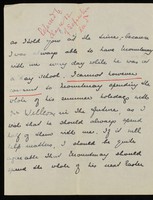 as I told you at the time, because
I was always able to have Broomburey
with me every day while he was at
a day school. I cannot however
consent to Broomburey spending the
whole of his summer holidays with
Dr Wellton in the future, as I
wish that he should always spend
half of them with me. If it will
help matters, I should be quite
agreeable that Broomburey should
spend the whole of his next Easter